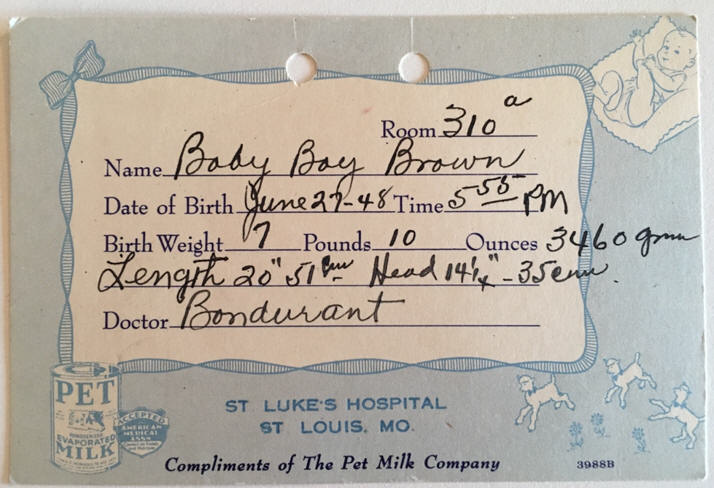 Room 310 a
Name Baby Boy Brown
Date of Birth June 27-48 Time 5 55 PM
Birth Weight 7 Pounds 10 Ounces 3460 gmm
Length 20" 51 cm Head 14 1/4" - 35 cm.
Doctor Bondurant
PET
EVAPORATED
MILK
ACCEPTED
AMERICAN
MEDICAL
ASSN
ST LUKE'S HOSPITAL
ST LOUIS, MO.
Compliments of The Pet Milk Company
3988B